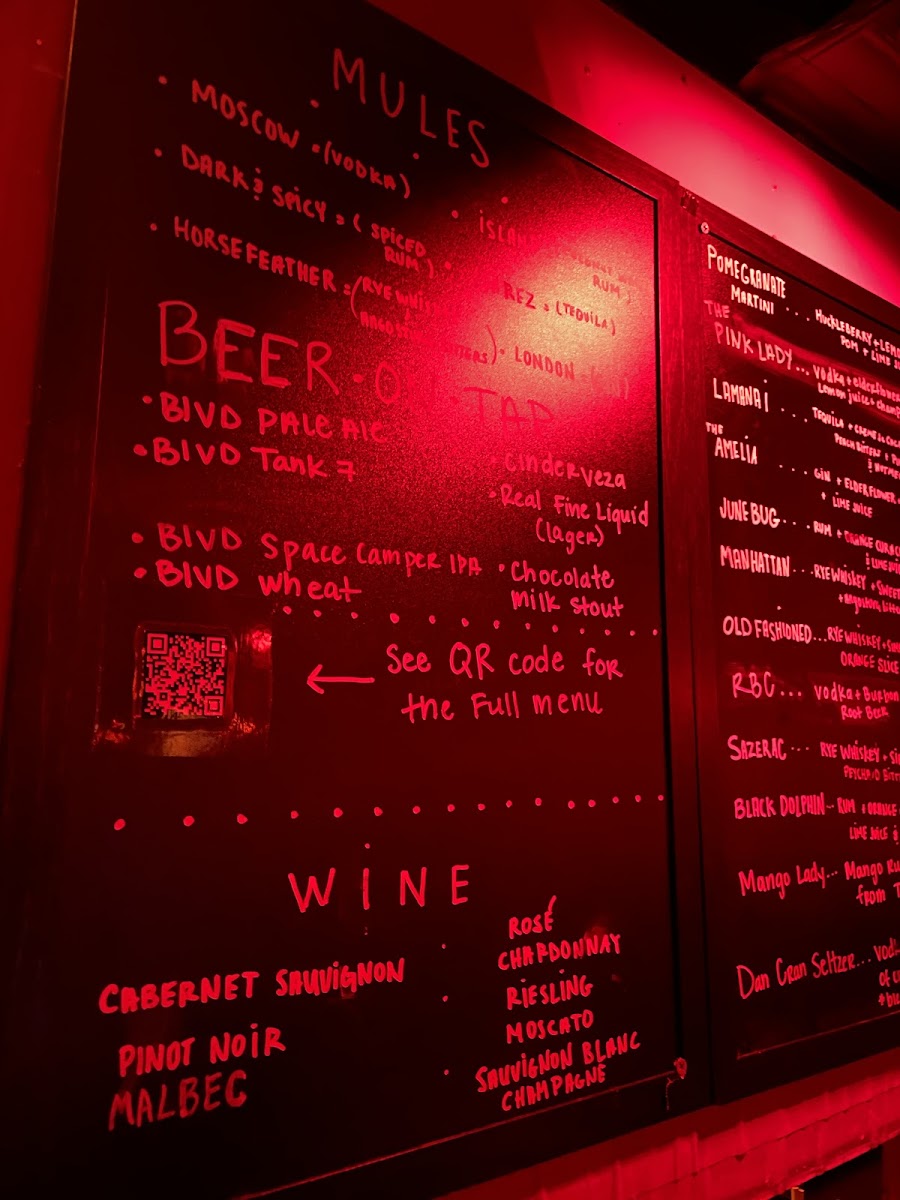 MULES
• MOSCOW • (VODKA)
• DARK & SPICY = ( SPICED
RUM )
• HORSEFEATHER = (RYE WHIS
• ISLAN
RUM )
REZ = (TEQUILA)
• LONDON
BEER • ON • TAP
• BLVD PALE ALE
• BLVD Tank 7
• BLVD Space Camper IPA
• BLVD wheat
• Cinderveza
• Real Fine Liquid
(lager)
• Chocolate
milk stout
← See QR code for
the Full menu
WINE
CABERNET SAUVIGNON
PINOT NOIR
MALBEC
ROSÉ
CHARDONNAY
RIESLING
MOSCATO
SAUVIGNON BLANC
CHAMPAGNE
POMEGRANATE
MARTINI .... HUCKLEBERRY + LEMO
POM + LIME
THE
PINK LADY... Vodka + elderflower
Lemon juice + champ
LAMANAI .... TEQUILA + CREME DE CAC
PEACH BITTERS +
THE
AMELIA .... GIN + ELDERFLOWER
+ LIME JUICE
JUNE BUG.... RUM + ORANGE CURAC
MANHATTAN ... RYE WHISKEY + SWEET
OLD FASHIONED... RYE WHISKEY +
ORANGE SLICE
RBC ... Vodka + Bourbon
Root Beer
SAZERAC ... RYE WHISKEY + SI
BITT
BLACK DOLPHIN-- RUM + ORANGE
LIME JUICE &
Mango Lady... Mango Ru
from T
Dan Cran Seltzer... vod
of c